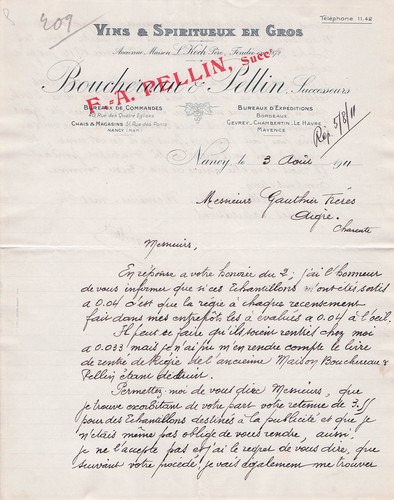 409
Téléphone 11.42
VINS & SPIRITUEUX EN GROS
Ancienne Maison L. Koch Père, Fondée en
Bouchereau & Pellin, Successeurs
F.-A. PELLIN, Succr
BUREAUX DE COMMANDES
Rue des Quatre Eglises
CHAIS & MAGASINS 31, Rue des Ponts
NANCY
BUREAUX D'EXPÉDITIONS
BORDEAUX
GEVREY-CHAMBERTIN - LE HAVRE
MAYENCE
Rép 5/8/11
Nancy, le 3 Août 1911
Messieurs Gauthier Frères
Aigre.
Charente
Messieurs,
En réponse a votre honorée du 2; j'ai l'honneur
de vous informer que si ces Echantillons m'ont étés sortis
a 0.04 c'est que la régie à chaque recensement
fait dans mes entrepôts les a évalués a 0.04 à l'œil.
Il peut se faire qu'ils soient rentrés chez moi
a 0.033 mais je n'ai pu m'en rendre compte le livre
de rentrée de Régie de l'ancienne Maison Bouchereau &
Pellin étant détruit.
Permettez-moi de vous dire Messieurs, que
je trouve exorbitant de votre part votre retenue de 3.
pour des Echantillons destinés à la publicité et que je
n'étais même pas obligé de vous rendre, aussi,
je ne l'accepte pas et j'ai le regret de vous dire, que
suivant votre procédé, je vais également me trouver